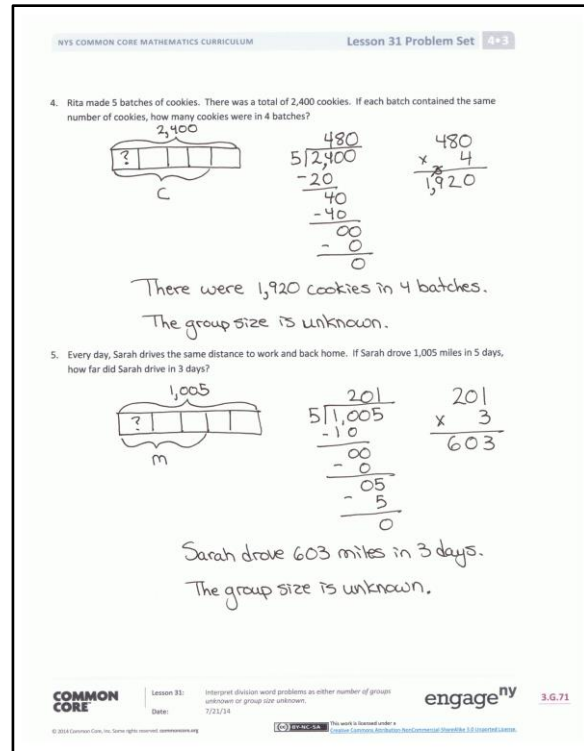 NYS COMMON CORE MATHEMATICS CURRICULUM Lesson 31 Problem Set 4•3
4. Rita made 5 batches of cookies. There was a total of 2,400 cookies. If each batch contained the same
number of cookies, how many cookies were in 4 batches?
2,400
?
C
480
5 2,400
-20
40
-40
00
- 0
0
480
x 4
1,920
There were 1,920 cookies in 4 batches.
The group size is unknown.
5. Every day, Sarah drives the same distance to work and back home. If Sarah drove 1,005 miles in 5 days,
how far did Sarah drive in 3 days?
1,005
?
m
201
5 1,005
-10
00
- 0
05
- 5
0
201
x 3
603
Sarah drove 603 miles in 3 days.
The group size is unknown.
COMMON
CORE
Lesson 31: Interpret division word problems as either number of groups
unknown or group size unknown.
Date: 7/21/14
engageny
3.G.71
© 2014 Common Core, Inc. Some rights reserved. commoncore.org
CC BY-NC-SA
This work is licensed under a
Creative Commons Attribution-NonCommercial-ShareAlike 3.0 Unported License.